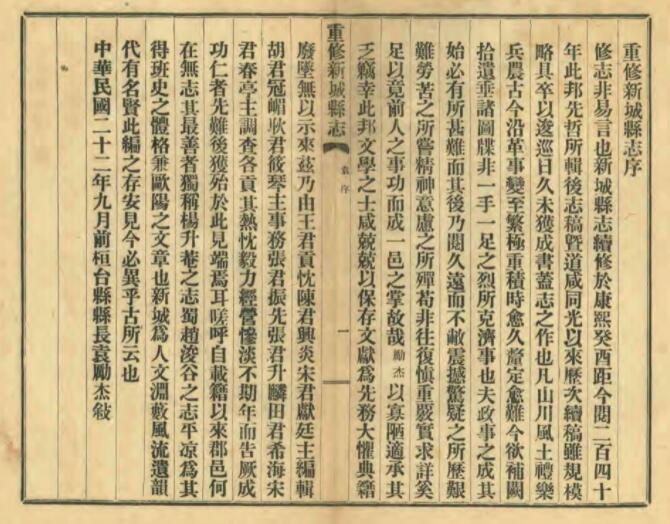 重修新城縣志序
修志非易言也新城縣志續修於康熙癸酉距今閱二百四十
年此邦先哲所輯後志稿暨道咸同光以來歷次續稿雖規模
略具卒以逡巡日久未獲成書蓋志之作也凡山川風土禮樂
兵農古今沿革事變至繁極重積時愈久釐定愈難今欲補闕
拾遺垂諸圖牒非一手一足之烈所克濟事也夫政事之成其
始必有所甚難而其後乃閱久遠而不敝震撼驚疑之所歷艱
難勞苦之所嘗精神意慮之所殫苟非往復慎重覈實求詳奚
足以竟前人之事功而成一邑之掌故哉勵杰以寡陋適承其
乏竊幸此邦文學之士咸兢兢以保存文獻爲先務大懼典籍
重修新城縣志
袁序
一
廢墜無以示來茲乃由王君貢忱陳君興炎宋君獻廷主編輯
胡君冠嵋耿君筱琴主事務張君振先張君升麟田君希海宋
君春亭主調查各貢其熱忱毅力經營慘淡不期年而告厥成
功仁者先難後獲始於此見端焉耳嗟呼自載籍以來郡邑何
在無志其最善者獨稱楊升菴之志蜀趙浚谷之志平凉爲其
得班史之體格兼歐陽之文章也新城爲人文淵藪風流遺韻
代有名賢此編之存安見今必異乎古所云也
中華民國二十二年九月前桓台縣縣長袁勵杰敍